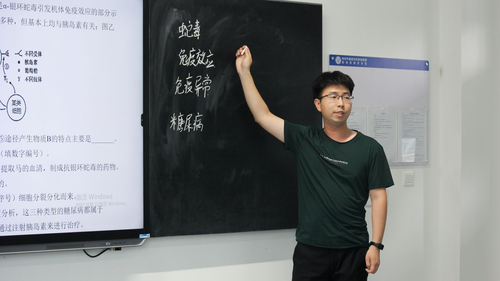 α-银环蛇毒引发机体免疫效应的部分示
多种，但基本上均与胰岛素有关；图乙
不同受体
胰岛素
葡萄糖
不同抗体
某类
细胞
些途径产生物质B的特点主要是______。
（填数字编号）。
提取马的血清，制成抗银环蛇毒的药物。
的。
序号）细胞分裂分化而来。
分析，这三种类型的糖尿病都属于
通过注射胰岛素来进行治疗。
蛇毒
免疫效应
免疫异常
糖尿病